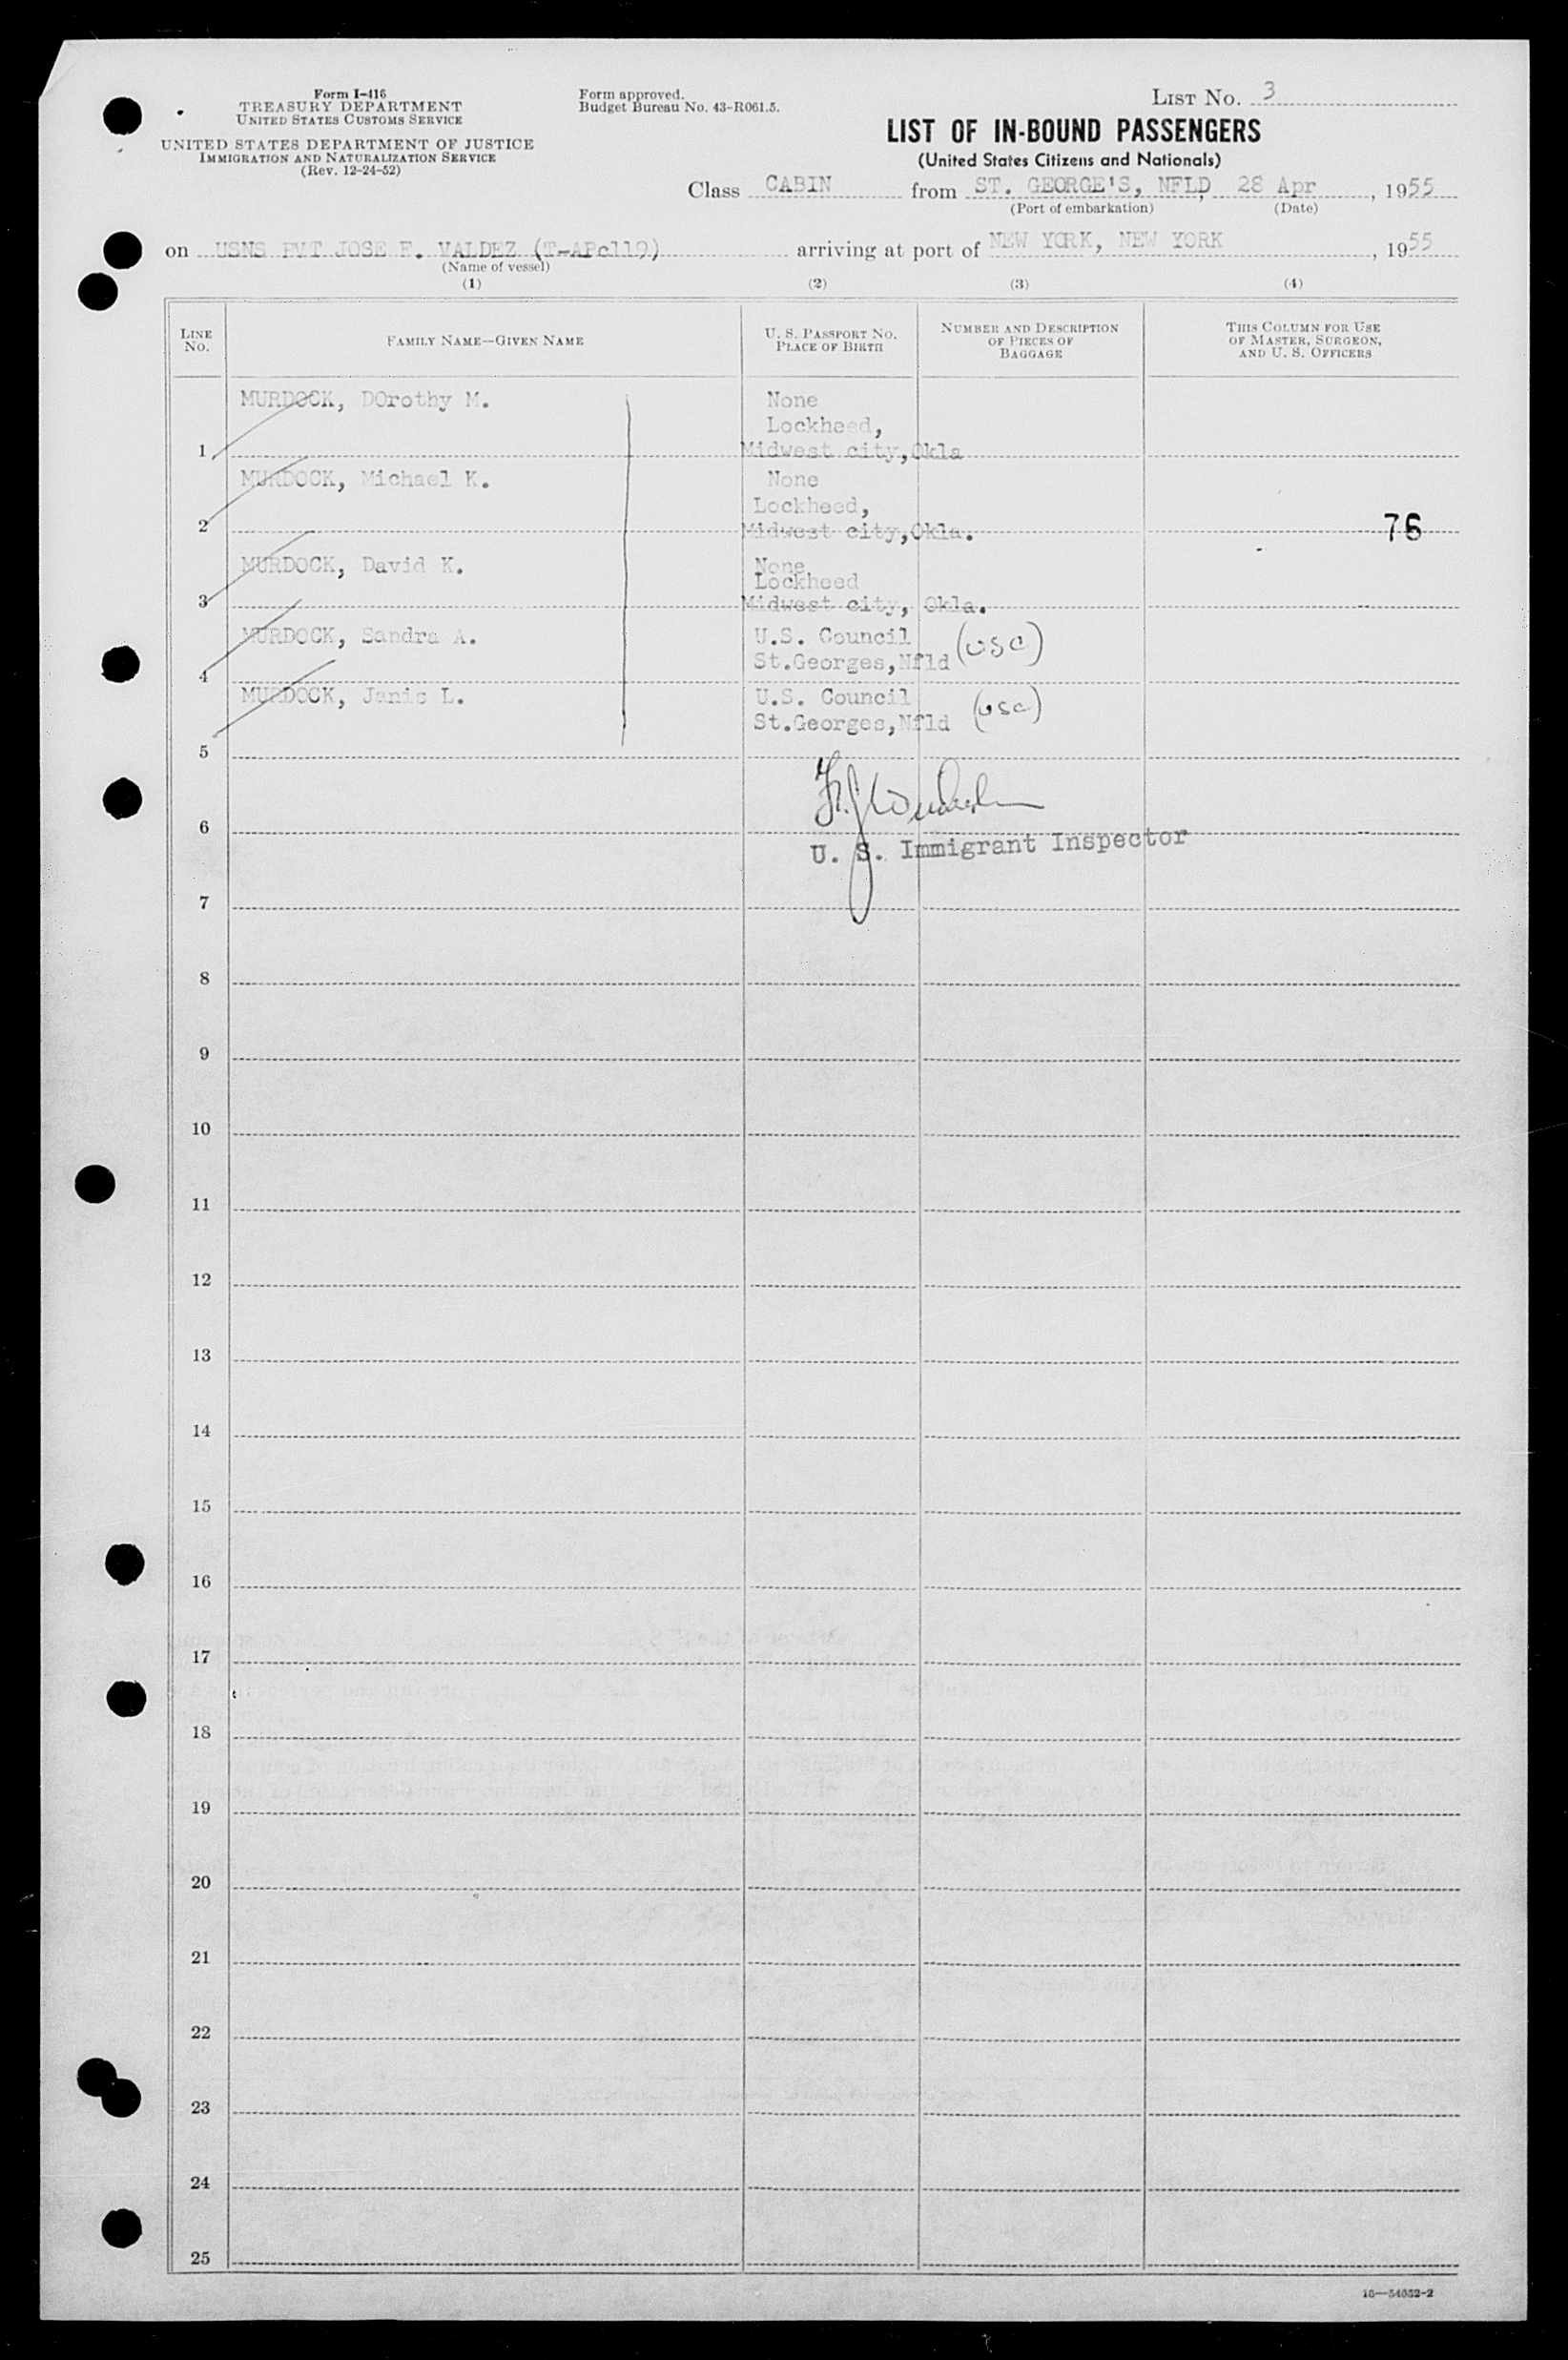 Form I-416
TREASURY DEPARTMENT
UNITED STATES CUSTOMS SERVICE
UNITED STATES DEPARTMENT OF JUSTICE
IMMIGRATION AND NATURALIZATION SERVICE
(Rev. 12-24-52)
Form approved.
Budget Bureau No. 43-R061.5.
LIST NO. 3
LIST OF IN-BOUND PASSENGERS
(United States Citizens and Nationals)
Class CABIN from ST. GEORGE'S, NFLD, 28 Apr, 1955
(Port of embarkation) (Date)
on USNS PVT JOSE F. VALDEZ (T-APc119) arriving at port of NEW YORK, NEW YORK, 1955
(Name of vessel)
(1) (2) (3) (4)
LINE NO. FAMILY NAME—GIVEN NAME U. S. PASSPORT NO. PLACE OF BIRTH NUMBER AND DESCRIPTION OF PIECES OF BAGGAGE THIS COLUMN FOR USE OF MASTER, SURGEON, AND U. S. OFFICERS
MURDOCK, DOrothy M. None
Lockheed,
1 Midwest city, Okla
MURDOCK, Michael K. None
Lockheed,
2 Midwest city, Okla. 76
MURDOCK, David K. None
Lockheed
3 Midwest city, Okla.
MURDOCK, Sandra A. U.S. Council
St.Georges, Nfld (USC)
4
MURDOCK, Janis L. U.S. Council
St.Georges, Nfld (usc)
5
6
U. S. Immigrant Inspector
7
8
9
10
11
12
13
14
15
16
17
18
19
20
21
22
23
24
25
16—54632-2